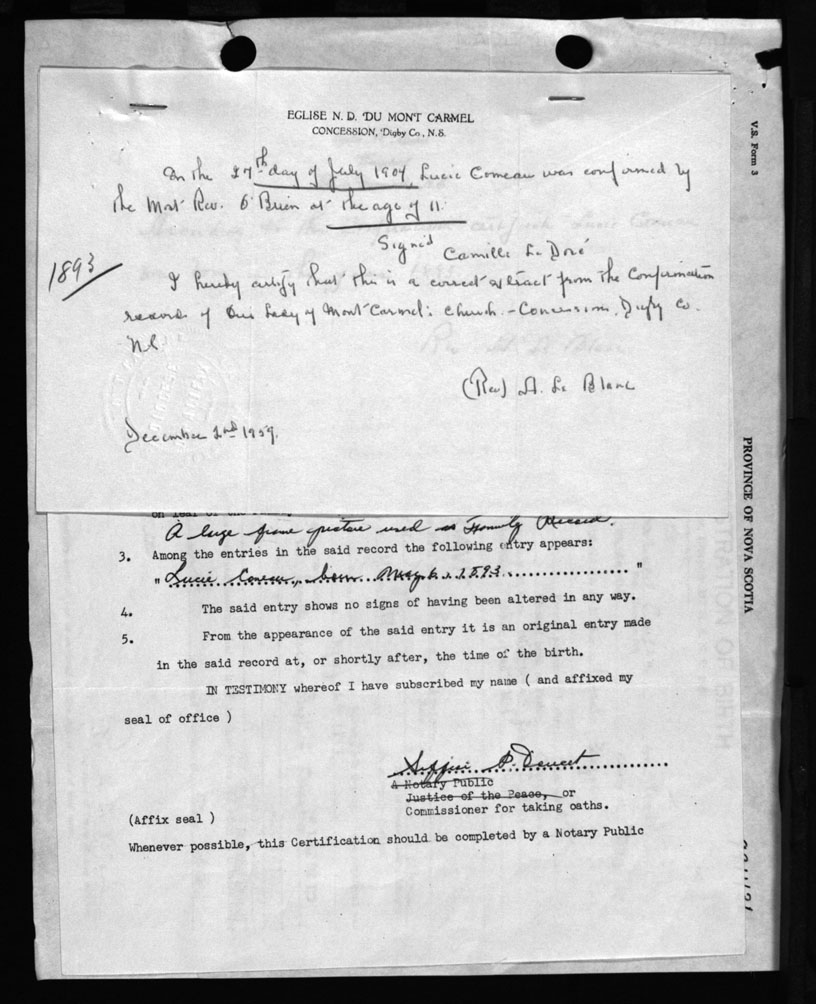 EGLISE N. D. DU MONT CARMEL
CONCESSION, Digby Co., N. S.
On the 27th day of July 1904, Lucie Comeau was confirmed by
the Most Rev. O'Brien at the age of 11.
Signed Camille Le Doré
1893
I hereby certify that this is a correct extract from the Confirmation
record of Our Lady of Mont Carmel: Church - Concession, Digby Co.
N.S.
(Rev) A. Le Blanc
December 2nd 1959.
A large frame picture used as Family Record.
3. Among the entries in the said record the following entry appears:
" Lucie Comeau, born May 6, 1893 "
4. The said entry shows no signs of having been altered in any way.
5. From the appearance of the said entry it is an original entry made
in the said record at, or shortly after, the time of the birth.
IN TESTIMONY whereof I have subscribed my name ( and affixed my
seal of office )
P. Doucet
A Notary Public
Justice of the Peace, or
Commissioner for taking oaths.
(Affix seal )
Whenever possible, this Certification should be completed by a Notary Public
V.S. Form 3
PROVINCE OF NOVA SCOTIA
TRATION OF BIRTH